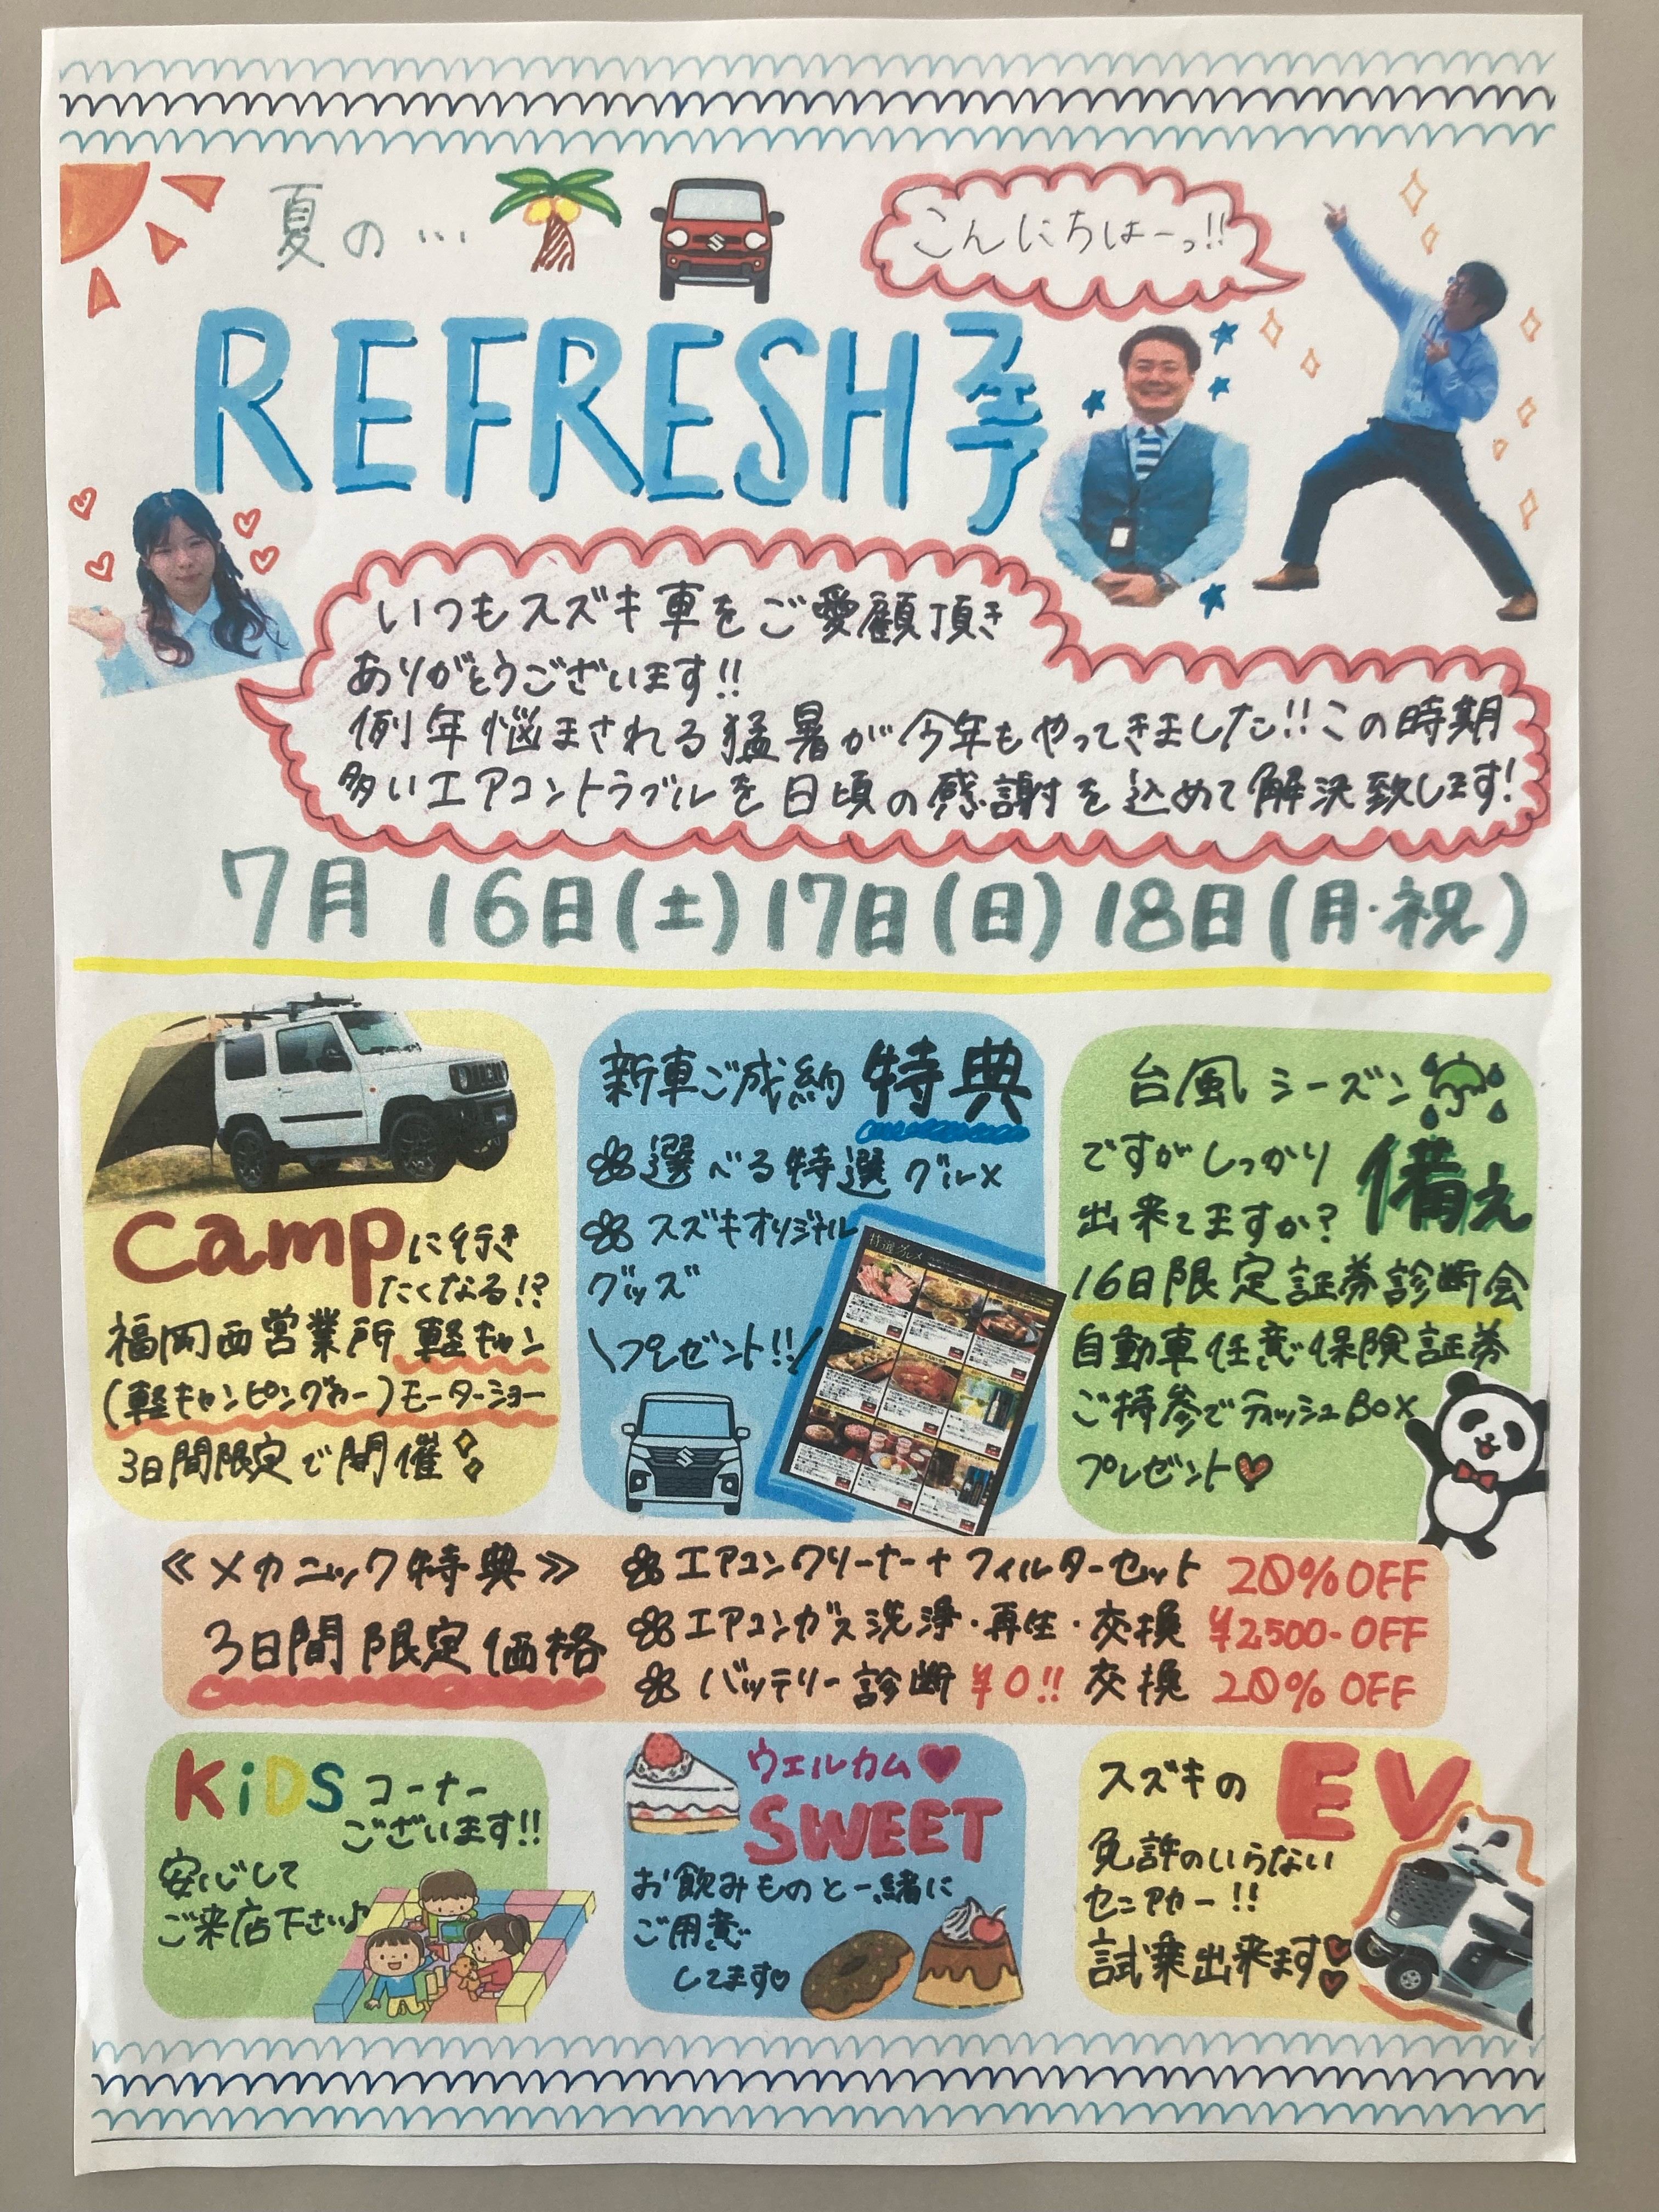 夏の…
こんにちはーっ!!
REFRESH 祭
いつもスズキ車をご愛顧頂き
ありがとうございます!!
例年悩まされる猛暑が今年もやってきました!!この時期
多いエアコントラブルを日頃の感謝を込めて解決致します!
7月 16日(土)17日(日)18日(月・祝)
Campに行き
たくなる!?
福岡西営業所 軽キャン
(軽キャンピングカー)モーターショー
3日間限定で開催
新車ご成約 特典
選べる特選グルメ
スズキオリジナル
グッズ
\プレゼント!!/
特選グルメ
台風シーズン
ですがしっかり 備え
出来てますか?
16日限定証券診断会
自動車任意保険証券
ご持参でティッシュBOX
プレゼント
≪メカニック特典≫
3日間限定価格
エアコンクリーナー+フィルターセット 20%OFF
エアコンガス洗浄・再生・交換 ¥2,500-OFF
バッテリー診断 ¥0!! 交換 20%OFF
KiDS コーナー
ございます!!
安心して
ご来店下さい♪
ウェルカム
SWEET
お飲みものと一緒に
ご用意
してます
スズキの EV
免許のいらない
セニアカー!!
試乗出来ます